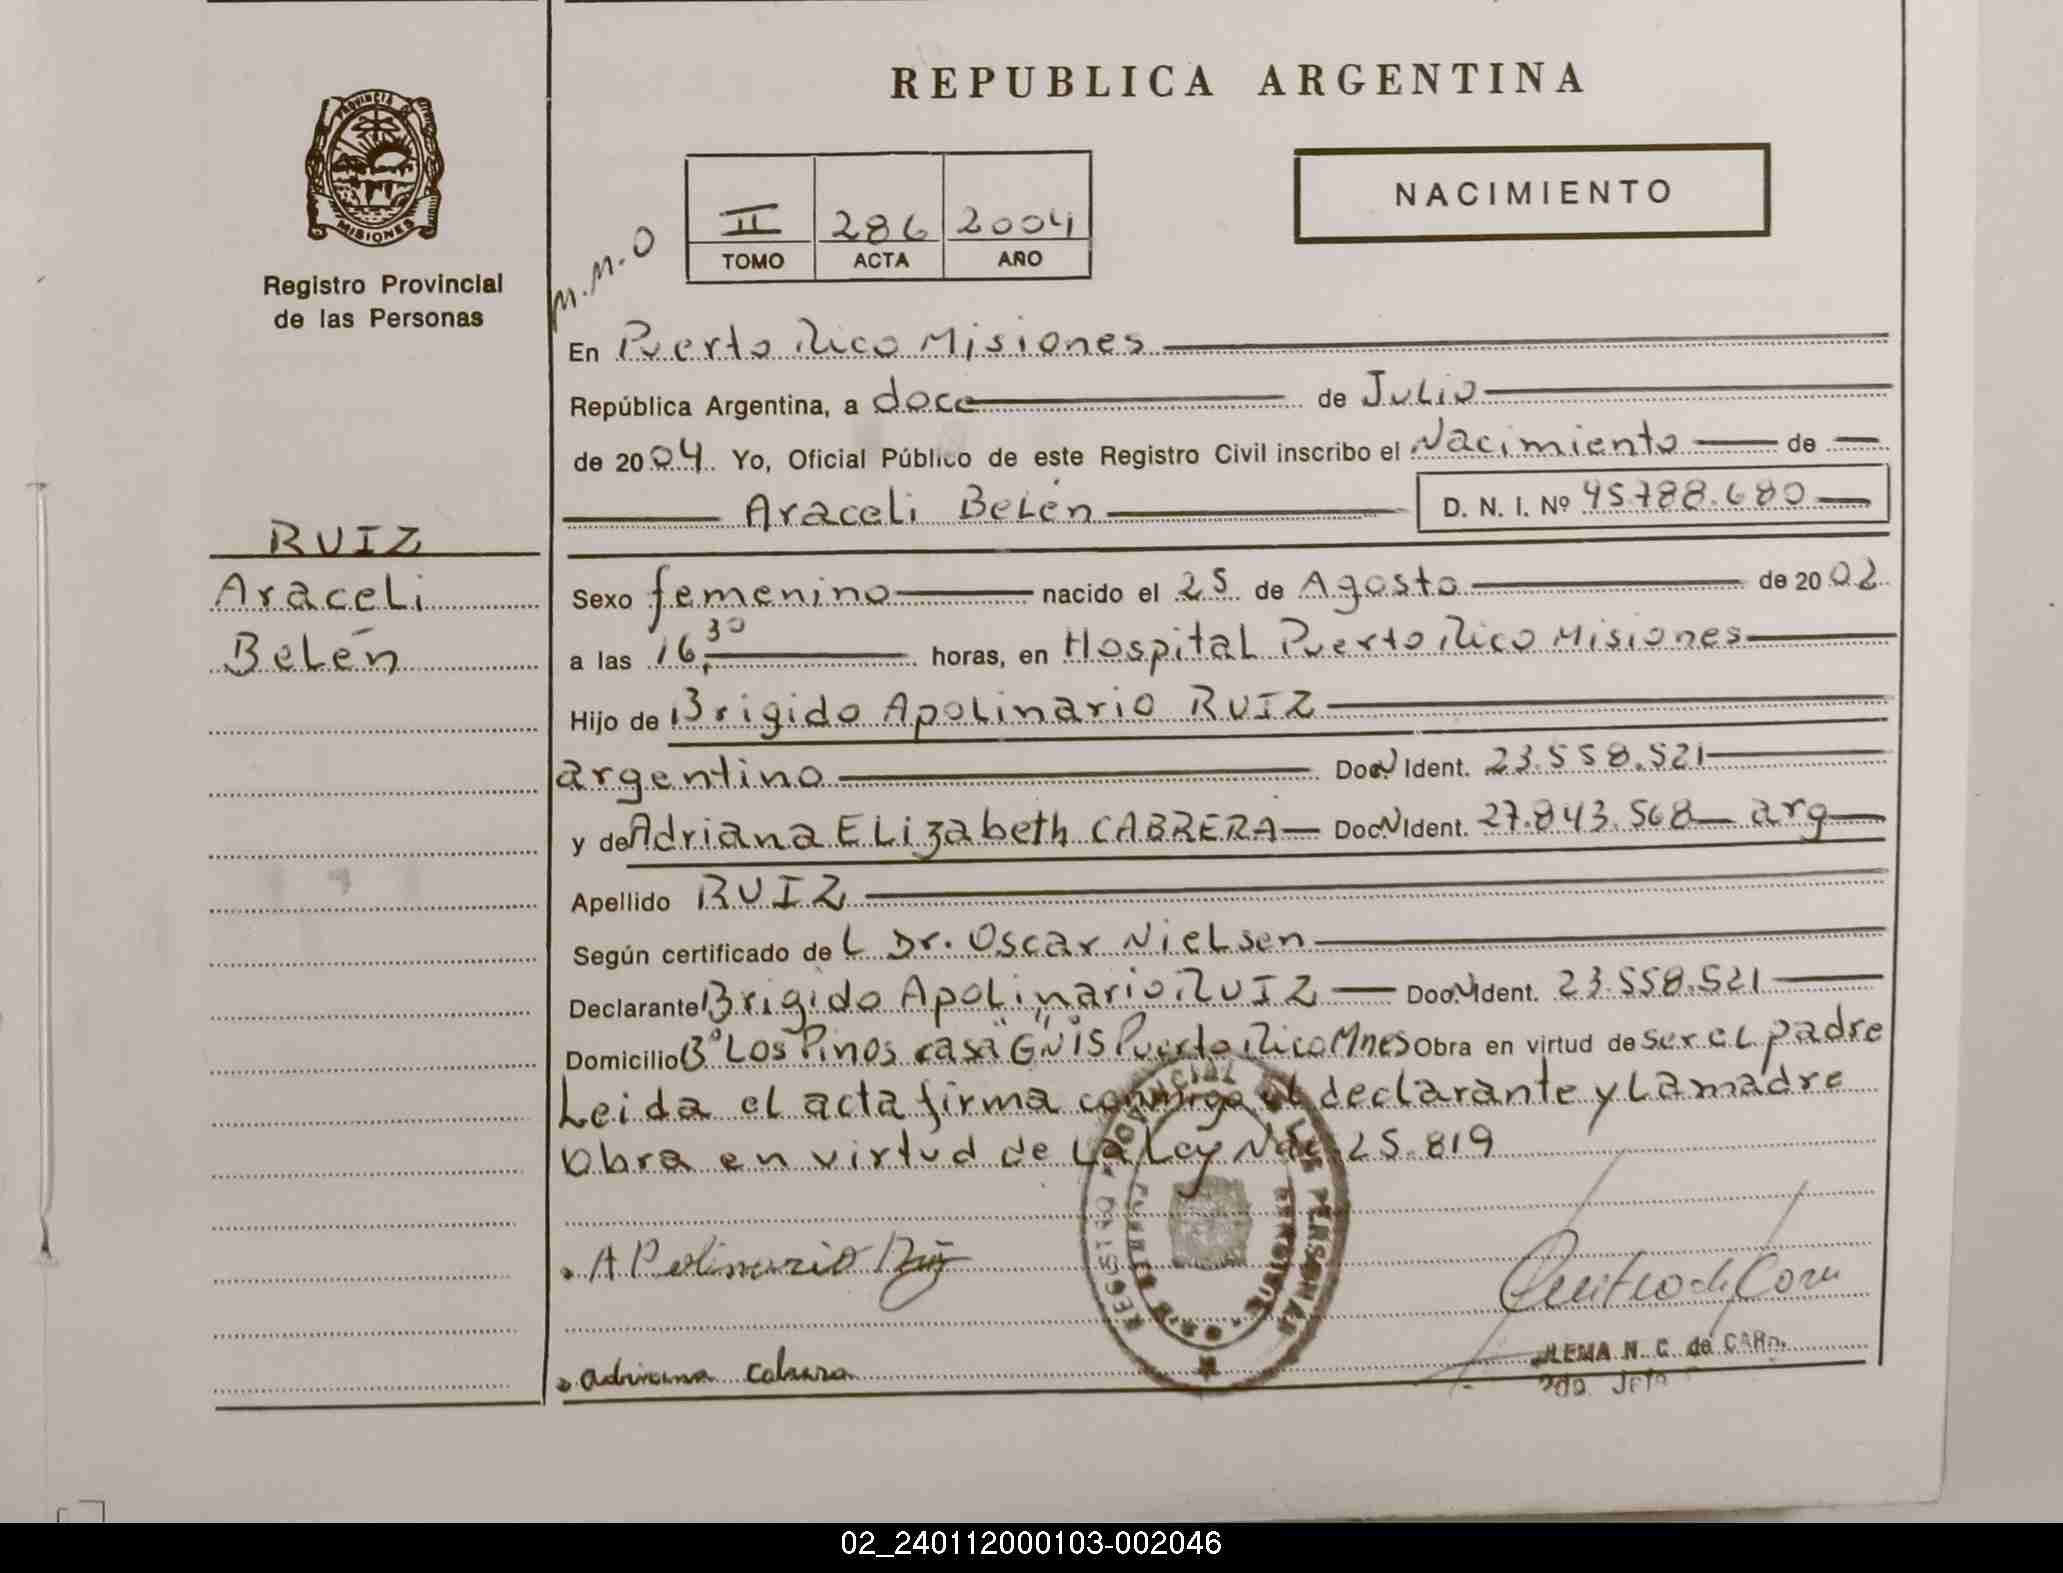 REPUBLICA ARGENTINA
PROVINCIA DE
MISIONES
Registro Provincial
de las Personas
NACIMIENTO
II 286 2004
TOMO ACTA AÑO
M.M.O
En Puerto Rico Misiones
República Argentina, a doce de Julio
de 2004. Yo, Oficial Público de este Registro Civil inscribo el Nacimiento de
Araceli Belén D. N. I. Nº 45788.680
RUIZ
Araceli
Belén
Sexo femenino nacido el 25 de Agosto de 2002
a las 16,30 horas, en Hospital Puerto Rico Misiones
Hijo de Brigido Apolinario RUIZ
argentino Doc.N Ident. 23.558.521
y de Adriana Elizabeth CABRERA Doc.N Ident. 27.843.568 arg
Apellido RUIZ
Según certificado del Dr. Oscar Nielsen
Declarante Brigido Apolinario RUIZ Doc.N Ident. 23.558.521
Domicilio Bº Los Pinos casa Puerto Rico Mnes Obra en virtud de ser el padre
Leida el acta firma conmigo el declarante y la madre
Obra en virtud de la Ley Nac 25.819
APolinario Ruiz
adriana cabrera
REGISTRO PROVINCIAL DE LAS PERSONAS
N. C. de
2do. Jefe
02_240112000103-002046